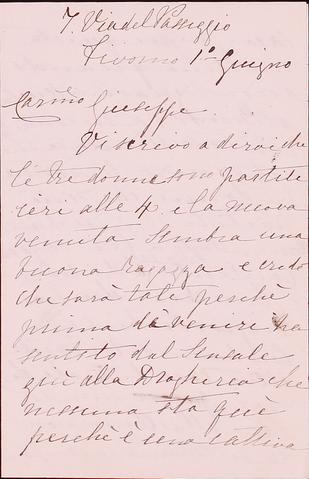 7. Via del Passeggio
Livorno 1º Giugno
Carmo Giuseppe.
Vi scrivo a dirvi che
le tre donne sono partite
ieri alle 4. e la nuova
venuta sembra una
buona ragazza e credo
che sarà tale perchè
prima di venire ha
sentito dal Sensale
giù alla Drogheria che
nessuna sta quì
perchè è una cattiva